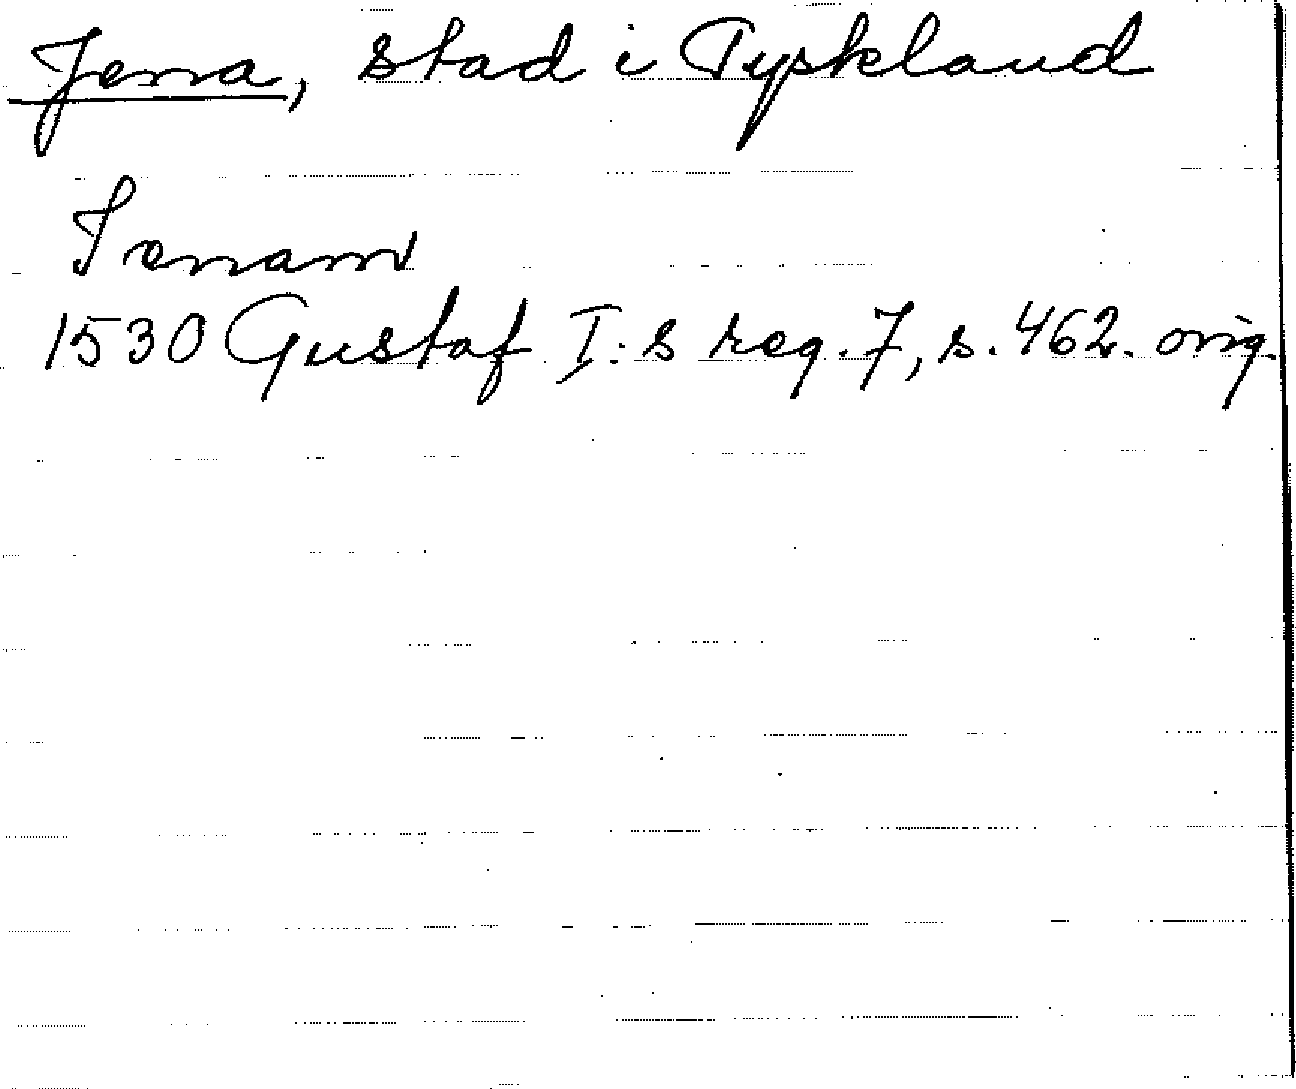 Jena, stad i Tyskland
Ienam
1530 Gustaf I:s reg. 7, s. 462. orig.